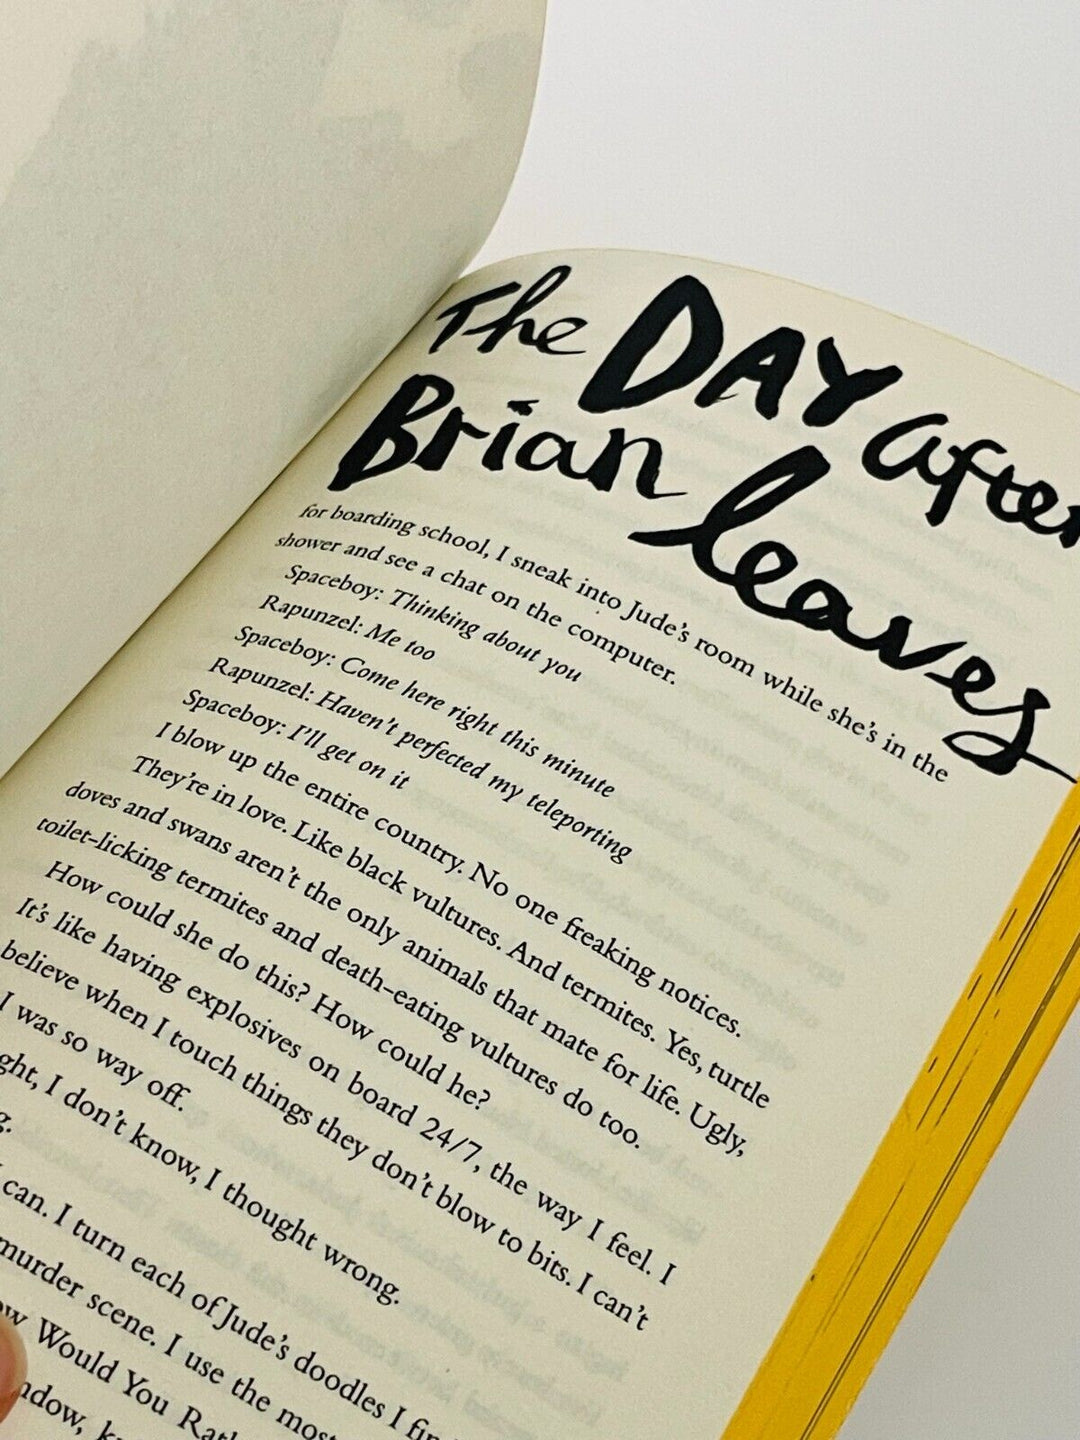 The DAY after
Brian leaves
for boarding school, I sneak into Jude's room while she's in the
shower and see a chat on the computer.
Spaceboy: Thinking about you
Rapunzel: Me too
Spaceboy: Come here right this minute
Rapunzel: Haven't perfected my teleporting
Spaceboy: I'll get on it
I blow up the entire country. No one freaking notices.
They're in love. Like black vultures. And termites. Yes, turtle
doves and swans aren't the only animals that mate for life. Ugly,
toilet-licking termites and death-eating vultures do too.
How could she do this? How could he?
It's like having explosives on board 24/7, the way I feel. I
believe when I touch things they don't blow to bits. I can't
I was so way off.
I don't know, I thought wrong.
can. I turn each of Jude's doodles I
murder scene. I use the most
Would You